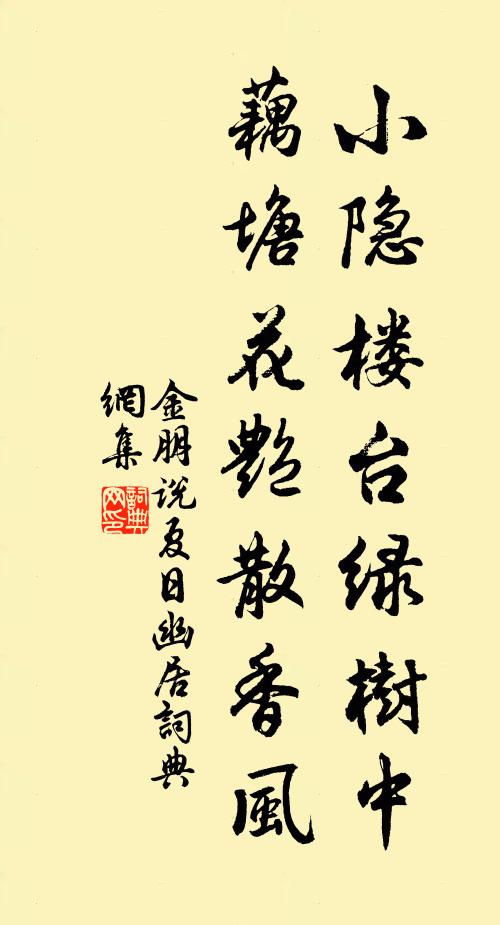 小隐楼台绿樹中
藕塘花艷散香風
金朋说夏日幽居詞典
網集
詞典
网印